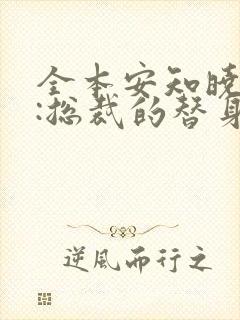 全本安知晓
:总裁的替身
逆風而行之